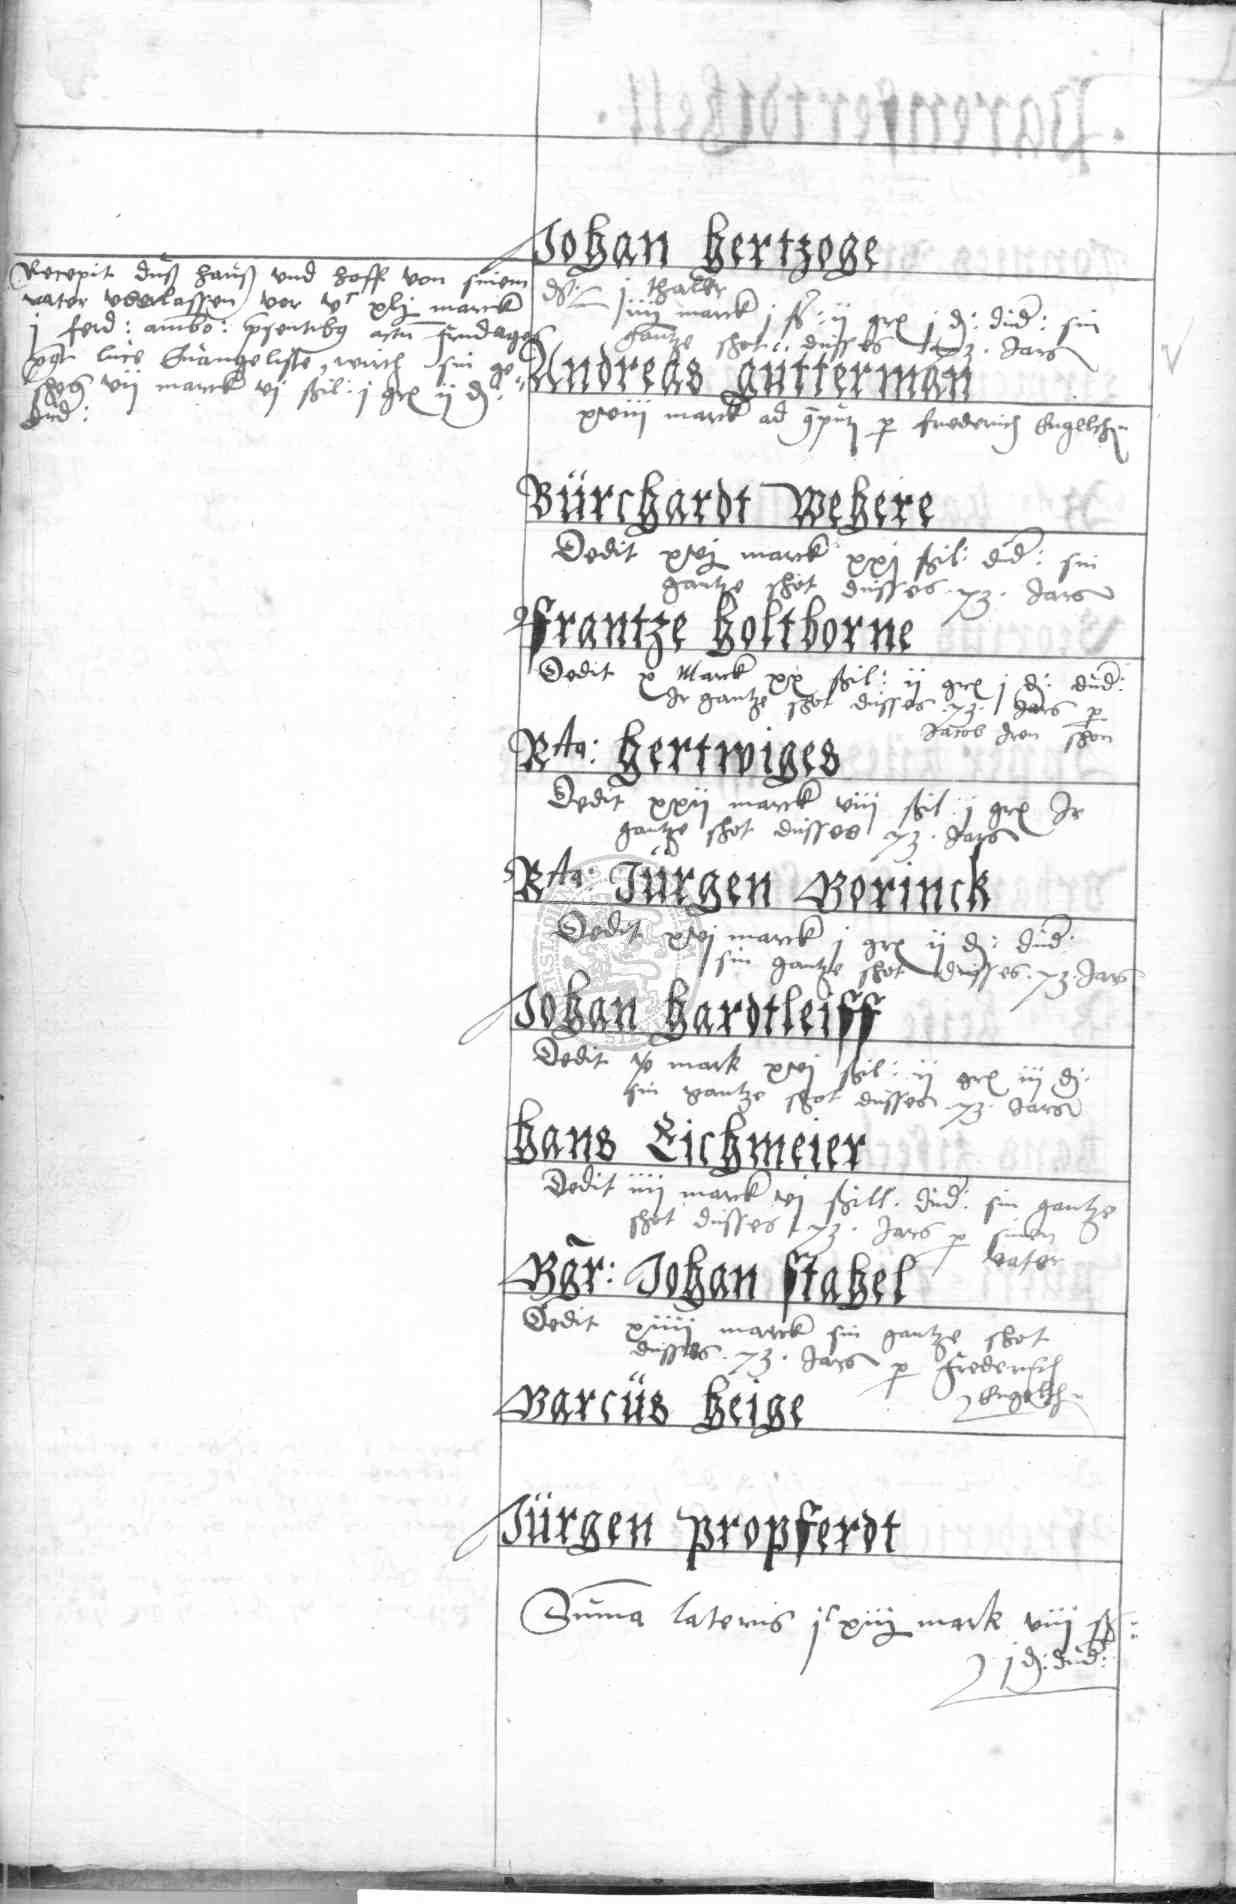 Johan Hertzoge
Recepit duß hauß und hoff von sinem
vater vberlassen vor vᶜ xlj marck
j ferd: ambo: presentibus actum
Luce Euangeliste, wirth sin ge
schoß vij marck vj ßil: j grꝭ ij ₰:
dud:
dt j thaler
iiij marck j ß: ij grꝭ j ₰: dud: sin
gantze schot dusses 73. Jars
Andreas gutterman
xviij marck ad computum per Frederich Engelch
Bürchardt Wehere
Dedit xvj marck xxj ßil: dud: sin
gantze schot dusses .73. Jars
Frantze Holtborne
Dedit x Marck xx ßil: ij grꝭ j ₰: dud:
Jr gantze schot dusses .73. Jars per
Jacob Jren shon
Rta: Hertwiges
Dedit xxij marck viij ßil: j grꝭ Jr
gantze schot dusses 73. Jars
Rta: Jürgen Borinck
Dedit xvj marck j grꝭ ij ₰: dud:
sin gantze schot dusses .73. Jars
Johan Hardtleiff
Dedit x mark xvj ßil: ij grꝭ iij ₰:
sin gantze schot dusses .73. Jars
Hans Eichmeier
Dedit iiij marck vj ßill: dud: sin gantze
schot dusses 73. Jars per sinen
vater
Bgr: Johan Stahel
Dedit xiiij marck sin gantze schot
dusses .73. Jars per Frederich
Engelch
Barcüs Heige
Jürgen Propferdt
Summa lateris jᶜ xiij mark viij ß:
j ₰: dud: